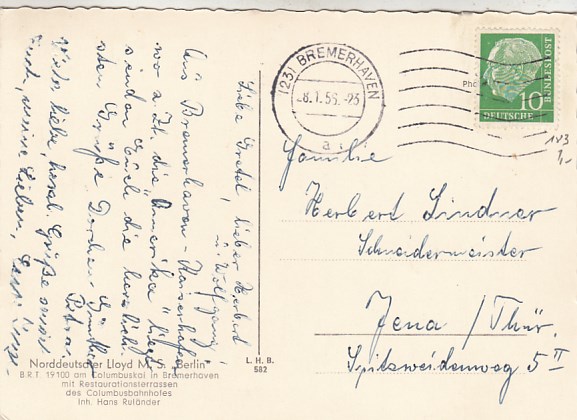 Liebe Gretel, lieber Herbert
u. Wolfgang!
Aus Bremerhaven-Kaiserhafen,
wo z. Zt. die "Amerika" liegt,
senden Euch die herzlich-
sten Grüße Dorchen, Günther
Petra.
Viele, liebe, herzl. Grüße seid
Euch, meine Lieben,
Norddeutscher Lloyd M. S. „Berlin"
B.R.T. 19100 am Columbuskai in Bremerhaven
mit Restaurationsterrassen
des Columbusbahnhofes
Inh. Hans Ruländer
L. H. B.
582
(23) BREMERHAVEN
8.1.56.-23
a
10
DEUTSCHE
BUNDESPOST
Pho
183
1,-
Familie
Herbert Lindner
Schneidermeister
Jena / Thür.
Spitzweidenweg 5 II